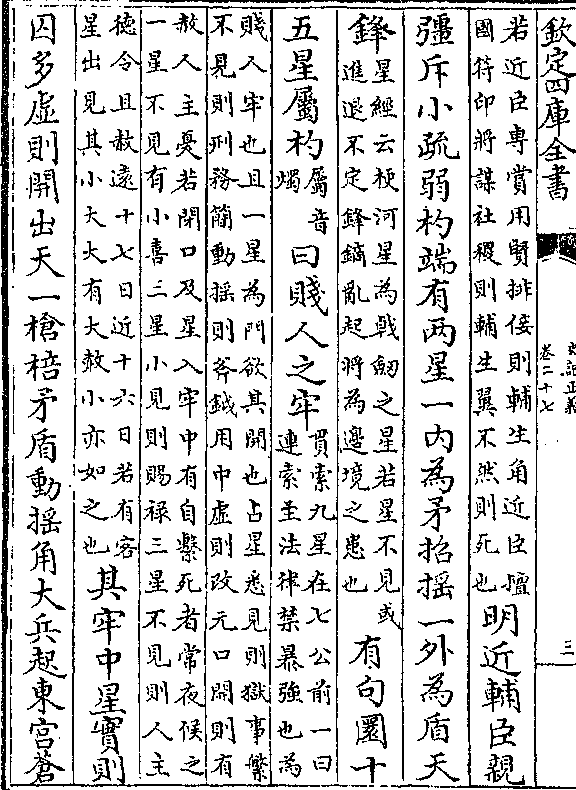 欽定四庫全書
史記正義
卷二十七
三
若近臣專賞用賢排佞則輔生角近臣擅
國符印將謀社稷則輔生翼不然則死也
明近輔臣親
彊斥小疏弱杓端有两星一内為矛招摇一外為盾天
鋒
星經云梗河星為戟劒之星若星不見或
進退不定鋒鏑亂起將為邊境之患也
有句圜十
五星屬杓
屬音
燭
曰賤人之牢
貫索九星在七公前一曰
連索主法律禁暴強也為
賤人牢也且一星為門欲其開也占星悉見則獄事繁
不見則刑務簡動摇則斧鉞用中虚則改元口開則有
赦人主憂若閉口及星入牢中有自繫死者常夜候之
一星不見有小喜二星小見則賜禄三星不見則人主
德令且赦遠十七日近十六日若有客
星出見其小大大有大赦小亦如之也
其牢中星實則
囚多虚則開出天一槍棓矛盾動摇角大兵起東宫蒼